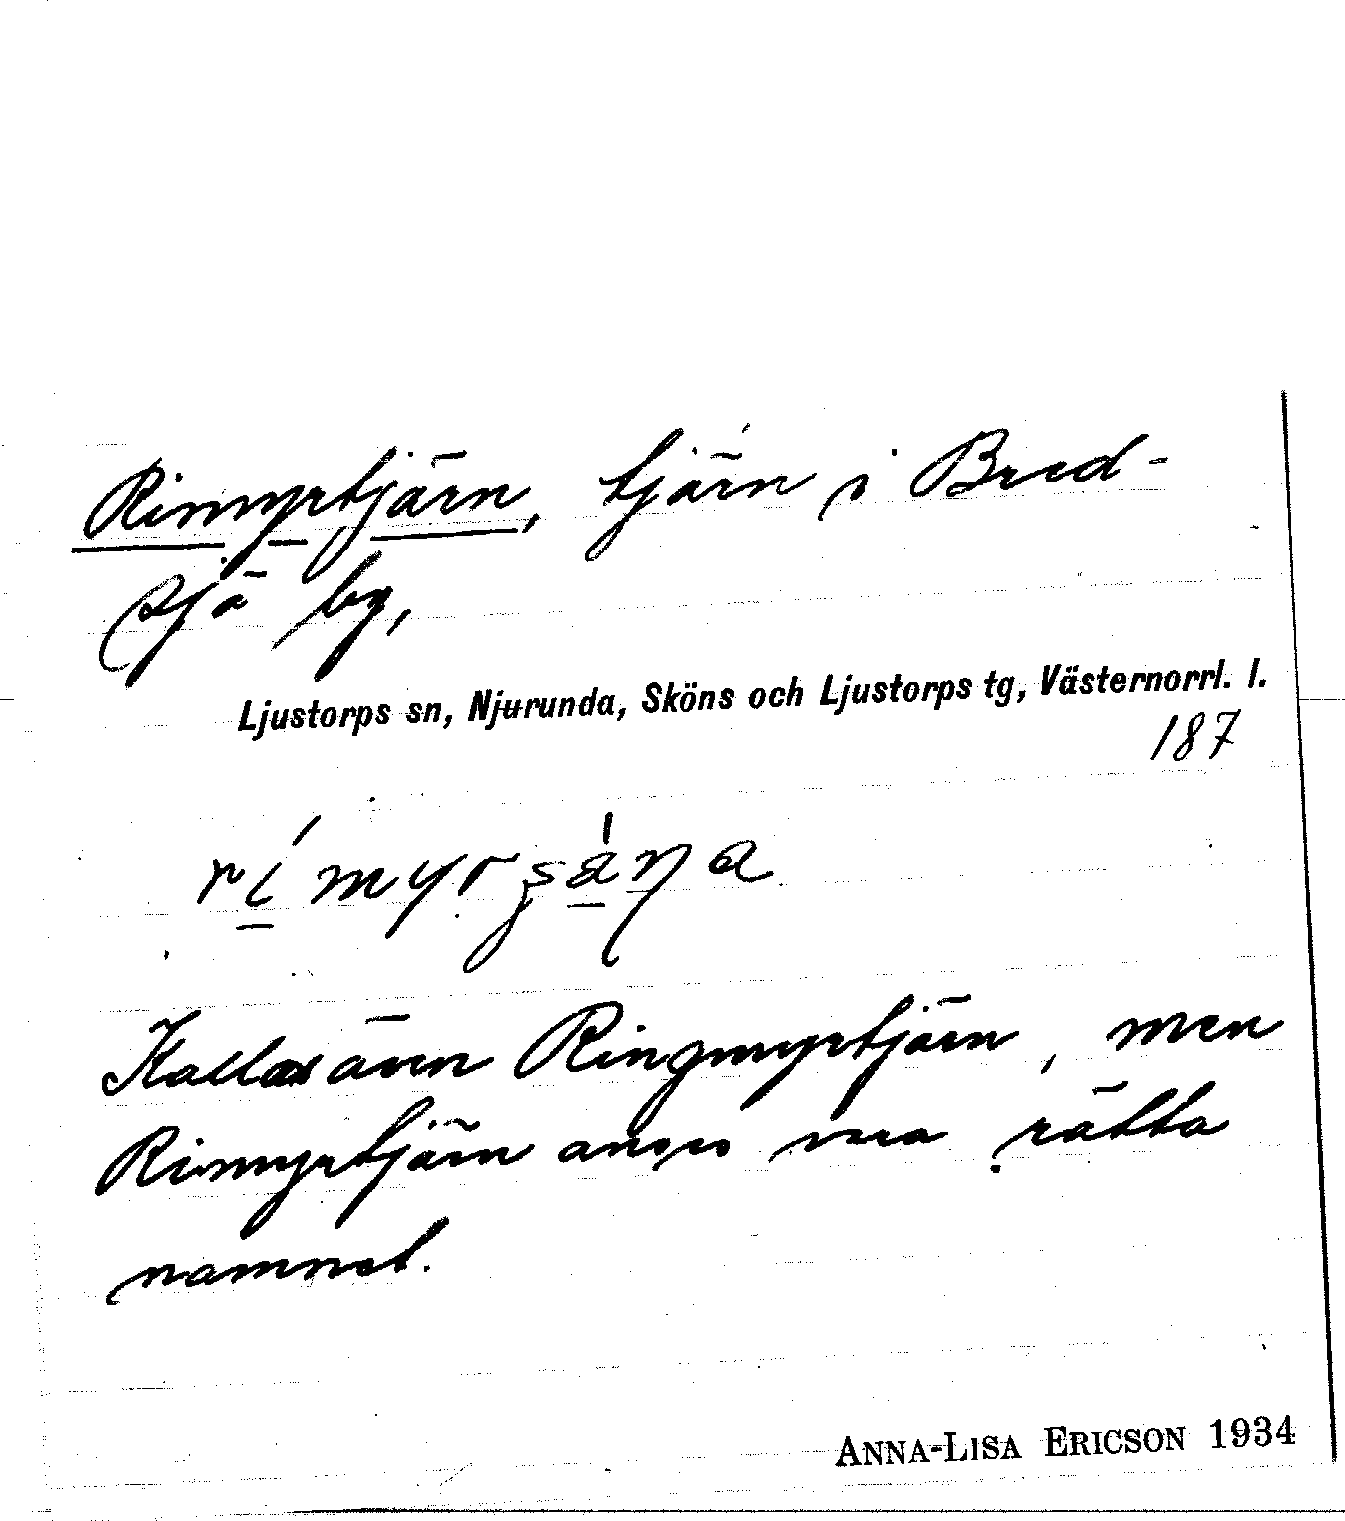 Rinmyrtjärn, tjärn i Bred-
sjö by,
Ljustorps sn, Njurunda, Sköns och Ljustorps tg, Västernorrl. l.
187
Kallas även Ringmyrtjärn, men
Rinmyrtjärn anses vara rätta
namnet.
ANNA-LISA ERICSON 1934